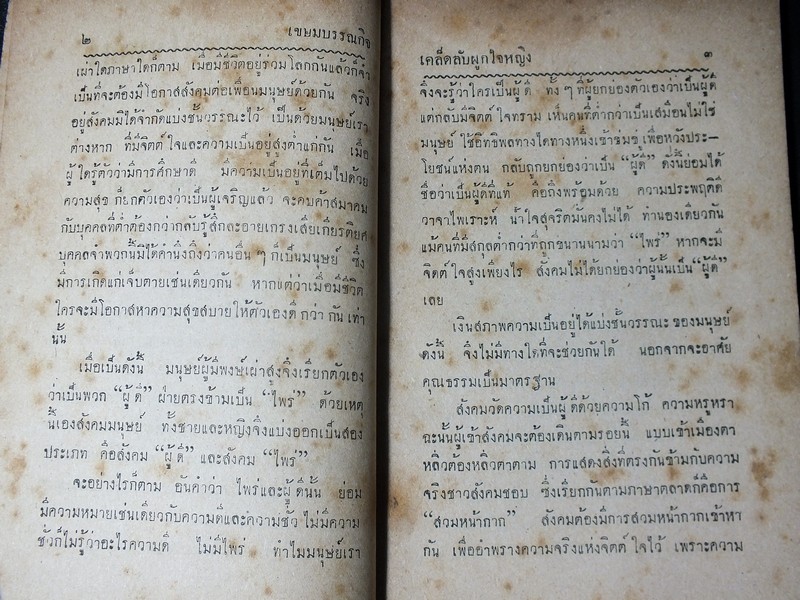 ๒ เขษมบรรณกิจ
เผ่าใดภาษาใดก็ตาม เมื่อมีชีวิตอยู่ร่วมโลกกันแล้วก็จำ
เป็นที่จะต้องมีโอกาสสังคมต่อเพื่อนมนุษย์ด้วยกัน จริง
อยู่สังคมมิได้จำกัดแบ่งชั้นวรรณะไว้ เป็นด้วยมนุษย์เรา
ต่างหาก ที่มีจิตต์ใจและความเป็นอยู่สูงต่ำแก่กัน เมื่อ
ผู้ใดรู้ตัวว่ามีการศึกษาดี มีความเป็นอยู่ที่เต็มไปด้วย
ความสุข ก็ยกตัวเองว่าเป็นผู้เจริญแล้ว จะคบค้าสมาคม
กับบุคคลที่ต่ำต้องกว่ากลับรู้สึกละอายเกรงเสียเกียรติยศ
บุคคลจำพวกนี้มิได้คำนึงถึงว่าคนอื่น ๆ ก็เป็นมนุษย์ ซึ่ง
มีการเกิดแก่เจ็บตายเช่นเดียวกัน หากแต่ว่าเมื่อมีชีวิต
ใครจะมีโอกาสหาความสุขสบายให้ตัวเองดีกว่ากันเท่า
นั้น
เมื่อเป็นดังนี้ มนุษย์ผู้มีพงษ์เผ่าสูงจึงเรียกตัวเอง
ว่าเป็นพวก “ผู้ดี” ฝ่ายตรงข้ามเป็น “ไพร่” ด้วยเหตุ
นี้เองสังคมมนุษย์ ทั้งชายและหญิงจึงแบ่งออกเป็นสอง
ประเภท คือสังคม “ผู้ดี” และสังคม “ไพร่”
จะอย่างไรก็ตาม อันคำว่า ไพร่และผู้ดีนั้น ย่อม
มีความหมายเช่นเดียวกับความดีและความชั่ว ไม่มีความ
ชั่วก็ไม่รู้ว่าอะไรความดี ไม่มีไพร่ ทำไมมนุษย์เรา
เคล็ดลับผูกใจหญิง ๓
จึงจะรู้ว่าใครเป็นผู้ดี ทั้ง ๆ ที่ผู้ยกยองตัวเองว่าเป็นผู้ดี
แต่กลับมีจิตต์ใจทราม เห็นคนที่ต่ำกว่าเป็นเสมือนไม่ใช่
มนุษย์ ใช้อิทธิพลทางใดทางหนึ่งเข้าข่มขู่ เพื่อหวังประ—
โยชน์แห่งตน กลับถูกยกย่องว่าเป็น “ผู้ดี” ดังนี้ย่อมได้
ชื่อว่าเป็นผู้ดีที่แท้ คือถึงพร้อมด้วย ความประพฤติดี
วาจาไพเราะห์ น้ำใจสุจริตมั่นคงไม่ได้ ทำนองเดียวกัน
แม้คนที่มีสกุลต่ำกว่าที่ถูกขนานนามว่า “ไพร่” หากจะมี
จิตต์ใจสูงเพียงไร สังคมไม่ได้ยกย่องว่าผู้นั้นเป็น “ผู้ดี”
เลย
เงินสภาพความเป็นอยู่ได้แบ่งชั้นวรรณะของมนุษย์
ดังนี้ จึงไม่มีทางใดที่จะช่วยกันได้ นอกจากจะอาศัย
คุณธรรมเป็นมาตรฐาน
สังคมวัดความเป็นผู้ดีด้วยความโก้ ความหรูหรา
ฉะนั้นผู้เข้าสังคมจะต้องเดินตามรอยนี้ แบบเข้าเมืองตา
หลิ่วต้องหลิ่วตาตาม การแสดงสิ่งที่ตรงกันข้ามกับความ
จริงชาวสังคมชอบ ซึ่งเรียกกันตามภาษาตลาดก็คือการ
“สวมหน้ากาก” สังคมต้องมีการสวมหน้ากากเข้าหา
กัน เพื่ออำพรางความจริงแห่งจิตต์ใจไว้ เพราะความ